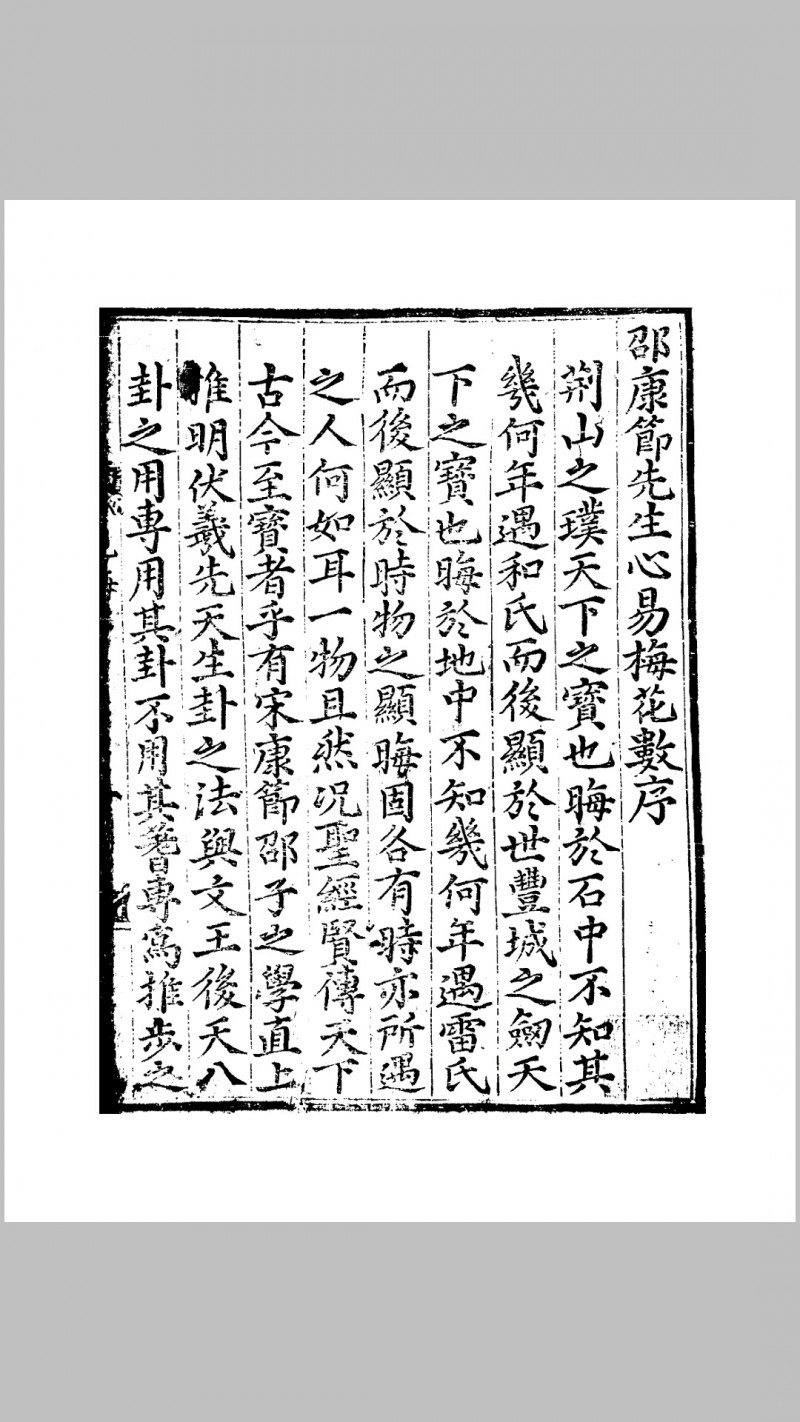 邵康節先生心易梅花數序
荆山之璞天下之寶也晦於石中不知其
幾何年遇和氏而後顯於世豐城之劒天
下之寶也晦於地中不知幾何年遇雷氏
而後顯於時物之顯晦固各有時亦所遇
之人何如耳一物且然况聖經賢傳天下
古今至寶者乎有宋康節邵子之學直上
推明伏羲先天生卦之法與文王後天八
卦之用專用其卦不用其蓍專爲推步之